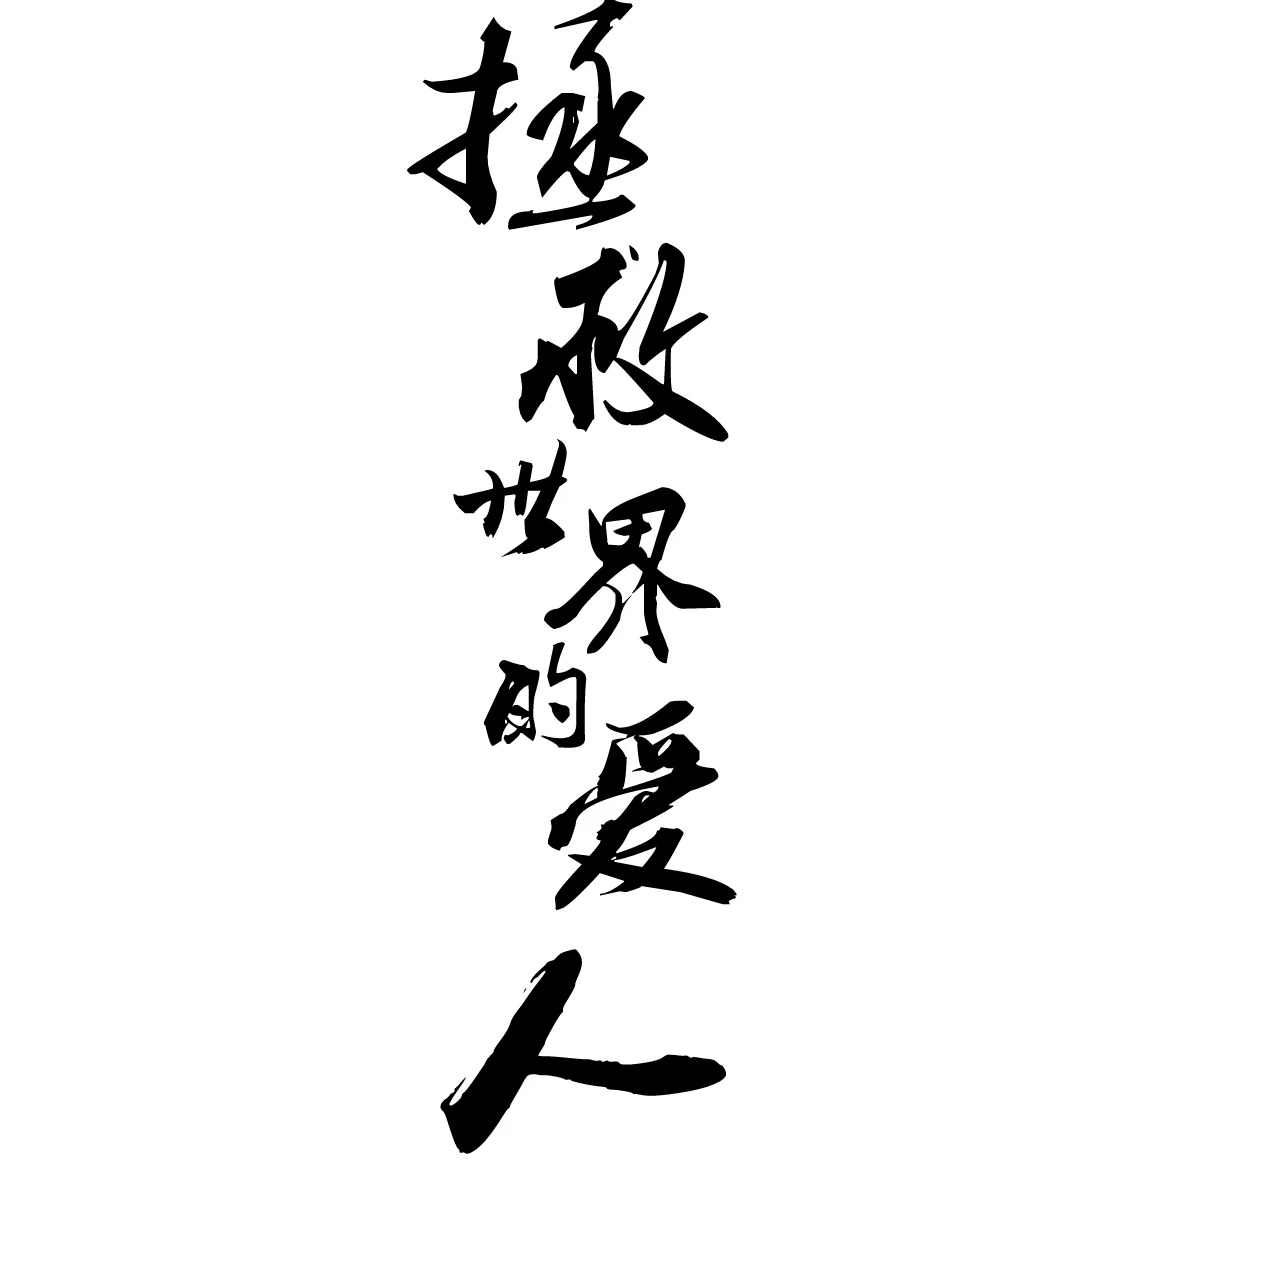 拯救世界的爱人